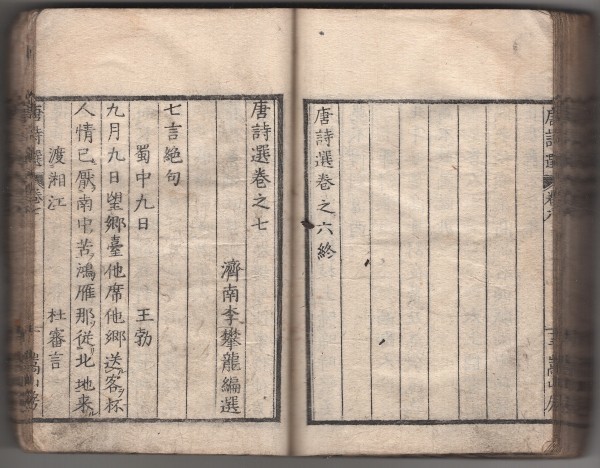 唐詩選 卷六 嵩山房
唐詩選卷之六終
唐詩選卷之七
濟南李攀龍編選
七言絶句
蜀中九日 王勃
九月九日望郷臺他席他郷送客杯
人情已厭南中苦鴻雁那從北地來
渡湘江 杜審言
唐詩選 卷七 嵩山房